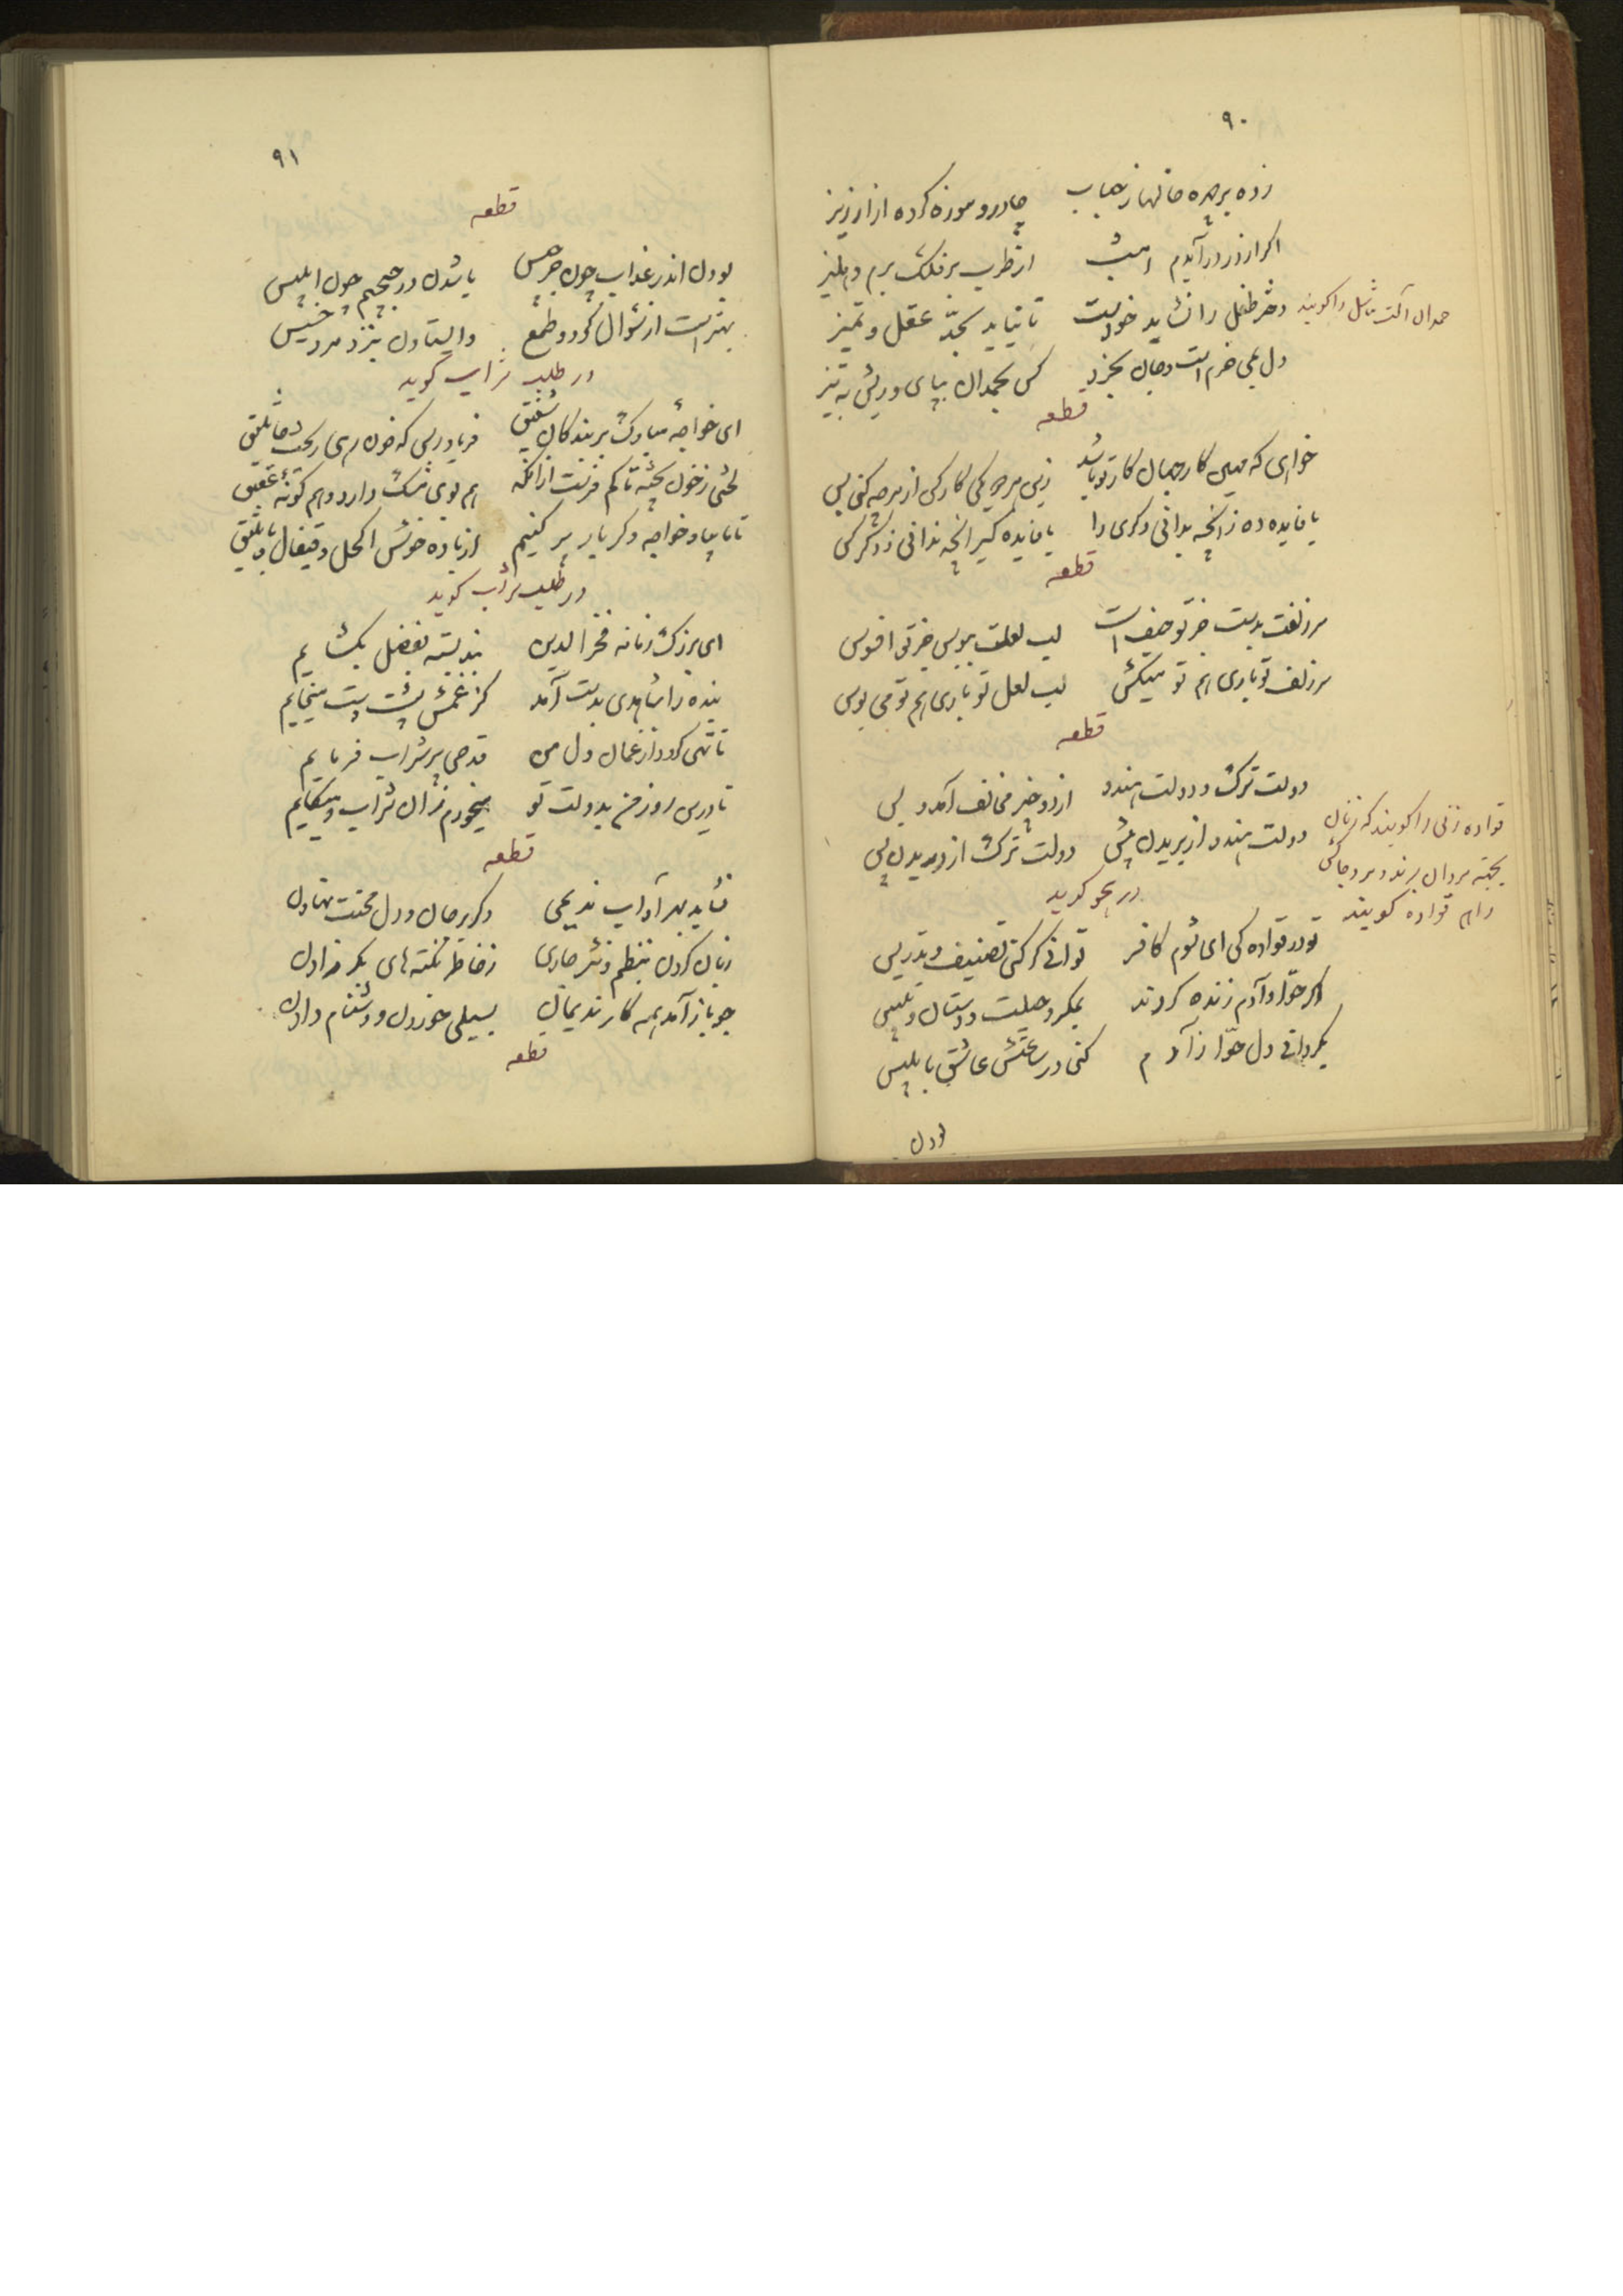 ۹۰
زده بر چهره خالها ز نصاب چادر و موزه کرده ازار زیز
اگر از در درآیدم امشب از طرب بر فلک برم دهلیز
دختر طفل را نشاید خواست تا نیاید بحد عقل و تمیز
حمدان آلت تناسل را گویند
دل می خرم است و جان بخرد کس بحمدان بپای و ریش به تیز
قطعه
خواهی که همه کار جهان کار تو باشد زین هر دو یکی کار کن از هر چه کنی بس
یا فایده ده ز آنچه بدانی دگری را یا فایده گیر آنچه ندانی ز دگر کس
قطعه
سر زلفت بدست جز تو حیف است لب لعلت ببوس جز تو افسوس
سر زلف تو باری هم تو میکش لب لعل تو باری هم تو می بوس
قطعه
دولت ترک و دولت هندو از دو چیز مخالف آمد و بس
دولت هندو از بریدن پیش دولت ترک از دریدن پس
قواده زنی را گویند که زنان
بجهة مردان برند و مرد جاکش
را هم قواده گویند
در هجو گوید
تو در قواده کی ای شوم کافر توانی گر کنی تصنیف و تدریس
اگر حوّا و آدم زنده گردند بمکر و حیلت و دستان و تلبیس
بگردانی دل حوّا ز آدم کنی در ساعتش عاشق بابلیس
بودن
۹۱
قطعه
بودن اندر عذاب چون جرجیس یا شدن در جحیم چون ابلیس
بهتر است از سؤال کرد و طمع وایستادن بنزد مرد خسیس
در طلب شراب گوید
ای خواجه مبارک بر بندگان شفیق فریاد رس که خون رهی ریخت جاثلیق
لختی ز خون بچه تاکم فرست از آنکه هم بوی مشک دارد و هم گونه عقیق
تا ما بیاد خواجه دگر بار پر کنیم از باده خوش اکحل و قیفال و باسلیق
در طلب شراب گوید
ای بزرگ زمانه فخر الدین بند بسته بفضل بگشایم
بنده را شاهدی بدست آمد کز غمش پشت دست میخایم
تا تهی گردد از غمان دل من قدحی پر شراب فرمایم
تا درین روز من بدولت تو میخورم زان شراب و میگایم
قطعه
نشاید بهر آداب ندیمی دگر بر جان و دل محنت نهادن
زبان کردن بنظم و نثر جاری ز خاطر نکته های بکر زادن
چو باز آمد همه کار ندیمان بسیلی خوردن و دشنام دادن
قطعه